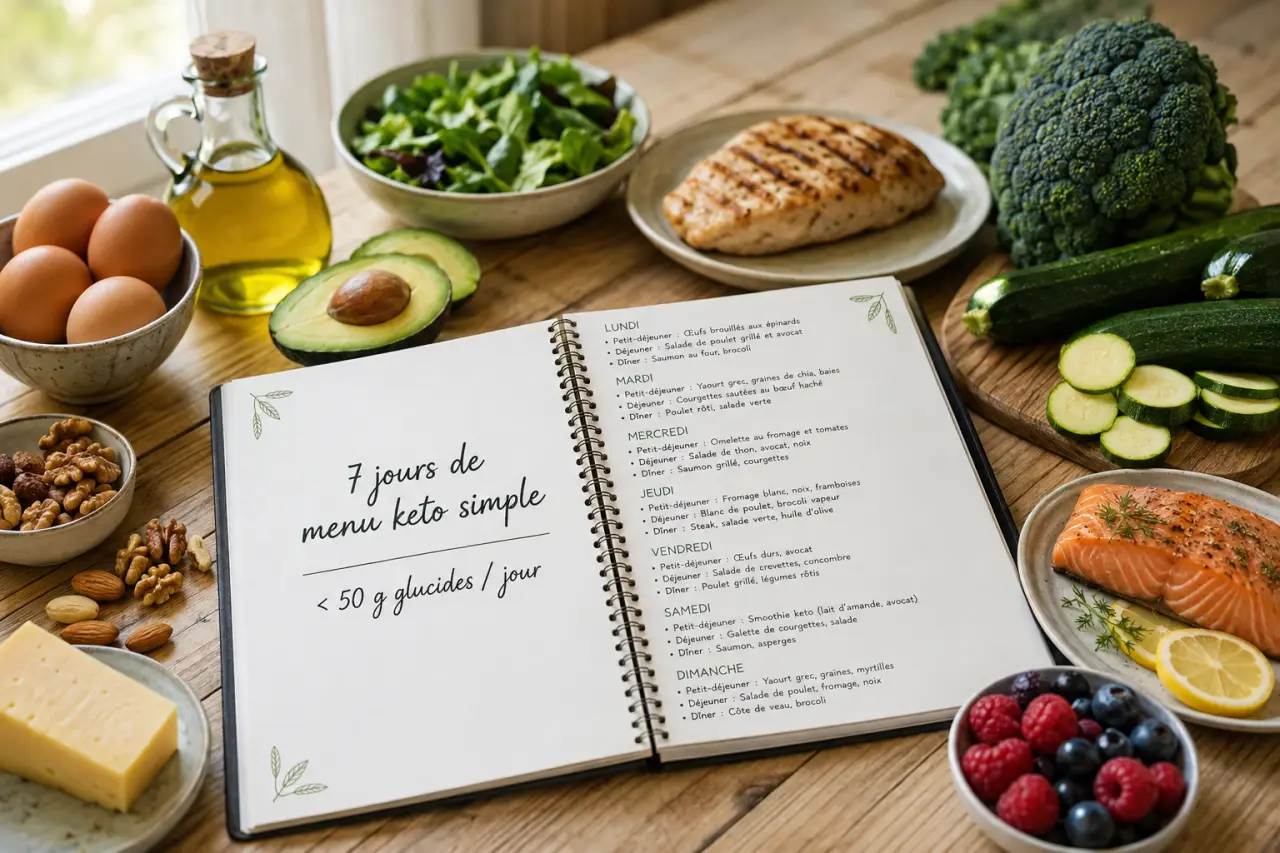 7 jours de
menu keto simple
< 50 g glucides / jour
LUNDI
• Petit-déjeuner : Œufs brouillés aux épinards
• Déjeuner : Salade de poulet grillé et avocat
• Dîner : Saumon au four, brocoli
MARDI
• Petit-déjeuner : Yaourt grec, graines de chia, baies
• Déjeuner : Courgettes sautées au bœuf haché
• Dîner : Poulet rôti, salade verte
MERCREDI
• Petit-déjeuner : Omelette au fromage et tomates
• Déjeuner : Salade de thon, avocat, noix
• Dîner : Saumon grillé, courgettes
JEUDI
• Petit-déjeuner : Fromage blanc, noix, framboises
• Déjeuner : Blanc de poulet, brocoli vapeur
• Dîner : Steak, salade verte, huile d'olive
VENDREDI
• Petit-déjeuner : Œufs durs, avocat
• Déjeuner : Salade de crevettes, concombre
• Dîner : Poulet grillé, légumes rôtis
SAMEDI
• Petit-déjeuner : Smoothie keto (lait d'amande, avocat)
• Déjeuner : Galette de courgettes, salade
• Dîner : Saumon, asperges
DIMANCHE
• Petit-déjeuner : Yaourt grec, graines, myrtilles
• Déjeuner : Salade de poulet, fromage, noix
• Dîner : Côte de veau, brocoli